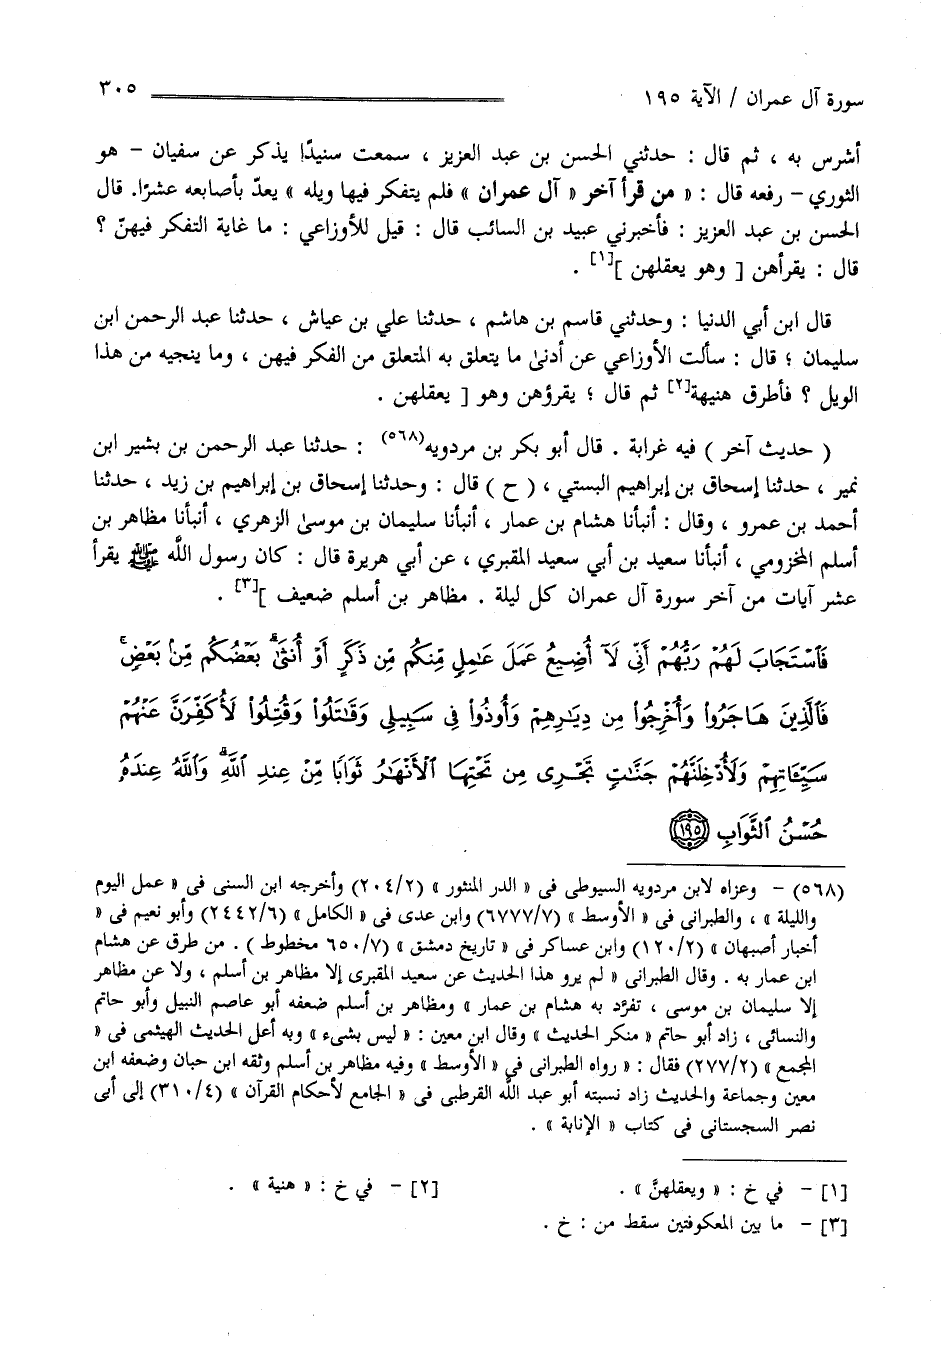 سورة آل عمران / الآية ١٩٥ ٣٠٥
أشرس به ، ثم قال : حدثني الحسن بن عبد العزيز ، سمعت سنيدًا يذكر عن سفيان - هو
الثوري - رفعه قال : « من قرأ آخر « آل عمران » فلم يتفكر فيها ويله » يعدّ بأصابعه عشرًا. قال
الحسن بن عبد العزيز : فأخبرني عبيد بن السائب قال : قيل للأوزاعي : ما غاية التفكر فيهنّ ؟
قال : يقرأهن [ وهو يعقلهن ][١] .
قال ابن أبي الدنيا : وحدثني قاسم بن هاشم ، حدثنا علي بن عياش ، حدثنا عبد الرحمن ابن
سليمان ؛ قال : سألت الأوزاعي عن أدنىٰ ما يتعلق به المتعلق من الفكر فيهن ، وما ينجيه من هذا
الويل ؟ فأطرق هنيهة[٢] ثم قال ؛ يقرؤهن وهو [ يعقلهن .
( حديث آخر ) فيه غرابة . قال أبو بكر بن مردويه(٥٦٨) : حدثنا عبد الرحمن بن بشير ابن
نمير ، حدثنا إسحاق بن إبراهيم البستي ، ( ح ) قال : وحدثنا إسحاق بن إبراهيم بن زيد ، حدثنا
أحمد بن عمرو ، وقال : أنبأنا هشام بن عمار ، أنبأنا سليمان بن موسىٰ الزهري ، أنبأنا مظاهر بن
أسلم المخزومي ، أنبأنا سعيد بن أبي سعيد المقبري ، عن أبي هريرة قال : كان رسول اللَّه ﷺ يقرأ
عشر آيات من آخر سورة آل عمران كل ليلة . مظاهر بن أسلم ضعيف ][٣] .
فَٱسْتَجَابَ لَهُمْ رَبُّهُمْ أَنِّى لَآ أُضِيعُ عَمَلَ عَٰمِلٍ مِّنكُم مِّن ذَكَرٍ أَوْ أُنثَىٰ ۖ بَعْضُكُم مِّنۢ بَعْضٍ ۖ
فَٱلَّذِينَ هَاجَرُوا۟ وَأُخْرِجُوا۟ مِن دِيَٰرِهِمْ وَأُوذُوا۟ فِى سَبِيلِى وَقَٰتَلُوا۟ وَقُتِلُوا۟ لَأُكَفِّرَنَّ عَنْهُمْ
سَيِّـَٔاتِهِمْ وَلَأُدْخِلَنَّهُمْ جَنَّٰتٍ تَجْرِى مِن تَحْتِهَا ٱلْأَنْهَٰرُ ثَوَابًا مِّنْ عِندِ ٱللَّهِ ۗ وَٱللَّهُ عِندَهُۥ
حُسْنُ ٱلثَّوَابِ ١٩٥
(٥٦٨) - وعزاه لابن مردويه السيوطى فى « الدر المنثور » (٢٠٤/٢) وأخرجه ابن السنى فى « عمل اليوم
والليلة » ، والطبرانى فى « الأوسط » (٦٧٧٧/٧) وابن عدى فى « الكامل » (٢٤٤٢/٦) وأبو نعيم فى «
أخبار أصبهان » (١٢٠/٢) وابن عساكر فى « تاريخ دمشق » (٦٥٠/٧ مخطوط ) . من طرق عن هشام
ابن عمار به . وقال الطبرانى « لم يرو هذا الحديث عن سعيد المقبرى إلا مظاهر بن أسلم ، ولا عن مظاهر
إلا سليمان بن موسى ، تفرّد به هشام بن عمار » ومظاهر بن أسلم ضعفه أبو عاصم النبيل وأبو حاتم
والنسائى ، زاد أبو حاتم « منكر الحديث » وقال ابن معين : « ليس بشىء » وبه أعل الحديث الهيثمى فى «
المجمع » (٢٧٧/٢) فقال : « رواه الطبرانى فى « الأوسط » وفيه مظاهر بن أسلم وثقه ابن حبان وضعفه ابن
معين وجماعة والحديث زاد نسبته أبو عبد اللَّه القرطبى فى « الجامع لأحكام القرآن » (٣١٠/٤) إلى أبى
نصر السجستانى فى كتاب « الإنابة » .
[١] - في خ : « ويعقلهنَّ » . [٢] - في خ : « هنية » .
[٣] - ما بين المعكوفتين سقط من : خ .